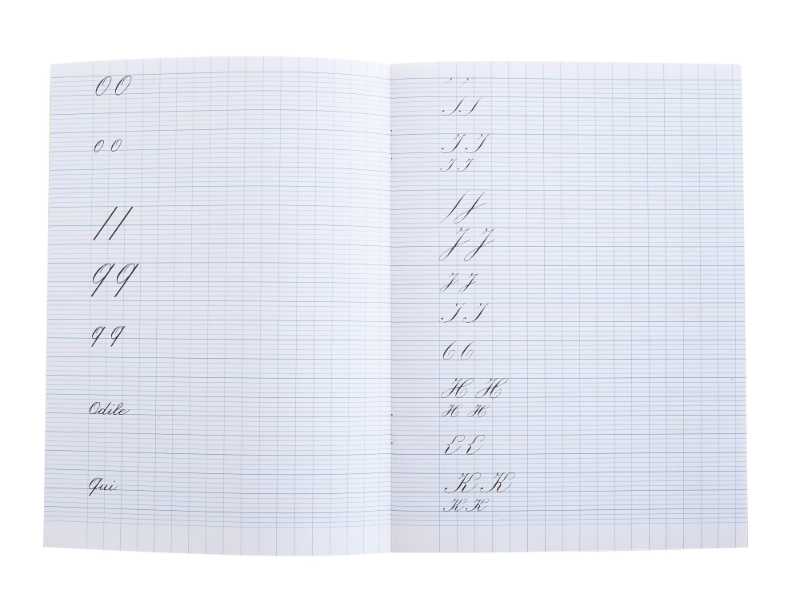 O O
o o
q q
q q
Odile
qui
I I
I I
J J
J J
I I
H H
H H
K K
K K